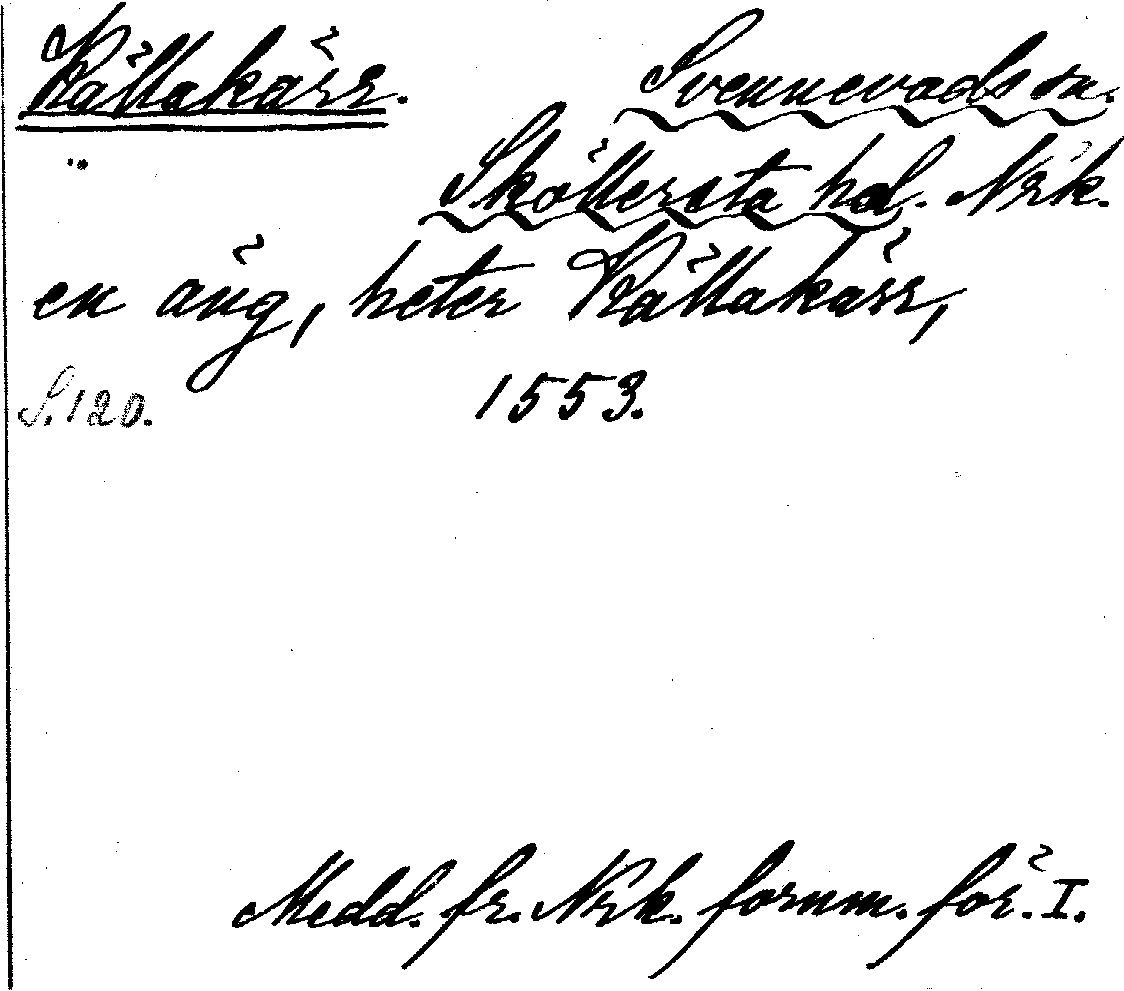 Källakärr. Svennevads sn.
Sköllersta hd. Nrk.
en äng, heter Källakärr,
S. 120. 1553.
Medd. fr. Nrk. fornm. för. I.